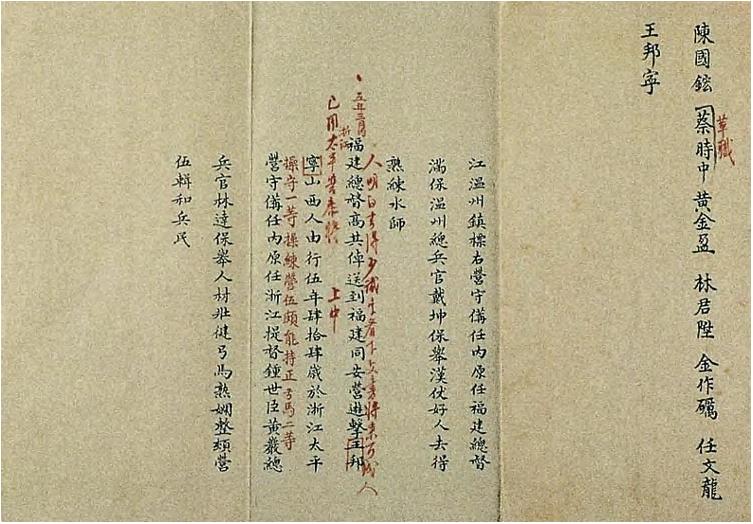 陳國鋐 蔡時中 黃金盈 林君陞 金作礪 任文龍
革職
王邦寧
江溫州鎮標右營守備任內原任福建總督
滿保溫州總兵官戴坤保舉漢仗好人去得
熟練水師
人明白去得少識字看下去
福建總督高其倬送到福建同安營遊擊王邦
五年三月
寧山西人由行伍年肆拾肆歲於浙江太平
上中
操守一等操練營伍頗能持正弓馬二等
營守備任內原任浙江提督鍾世臣黃巖總
兵官林達保舉人材壯健弓馬熟嫻整頓營
伍輯和兵民